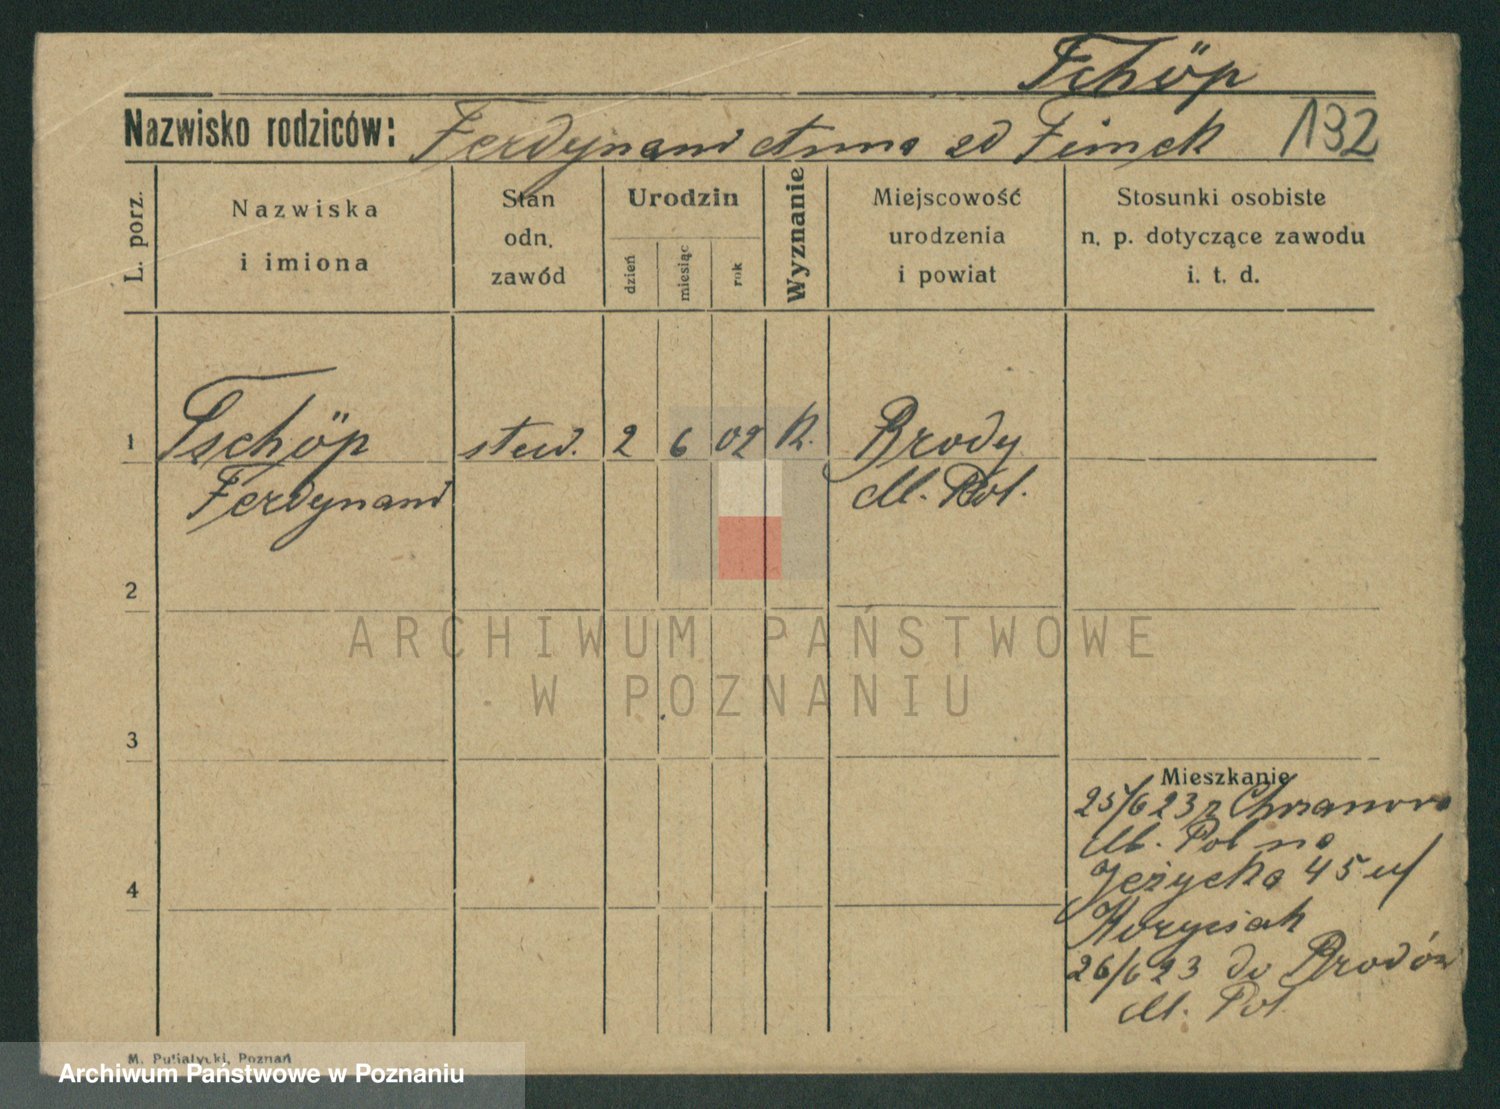 Tschöp
Nazwisko rodziców: Ferdynand Anna zd Zimek 132
L. porz.
Nazwiska
i imiona
Stan
odn.
zawód
Urodzin
dzień
miesiąc
rok
Wyznanie
Miejscowość
urodzenia
i powiat
Stosunki osobiste
n. p. dotyczące zawodu
i. t. d.
1 Tschöp stud. 2 6 02 k. Brody
Ferdynand M. Pol.
2
3
4
ARCHIWUM PAŃSTWOWE
W POZNANIU
Mieszkanie
25/6 23 z Chrzanowa
M. Pol na
Jeżycka 45 u/
26/6 23 do Brodów
M. Pol.
M. Putiatycki, Poznań
Archiwum Państwowe w Poznaniu